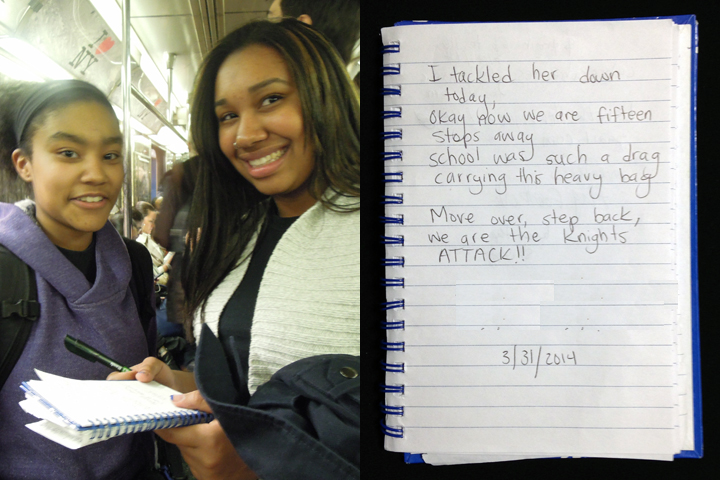 I NY
I tackled her down
today,
Okay now we are fifteen
stops away
school was such a drag
carrying this heavy bag
Move over, step back,
we are the Knights
ATTACK!!
3/31/2014